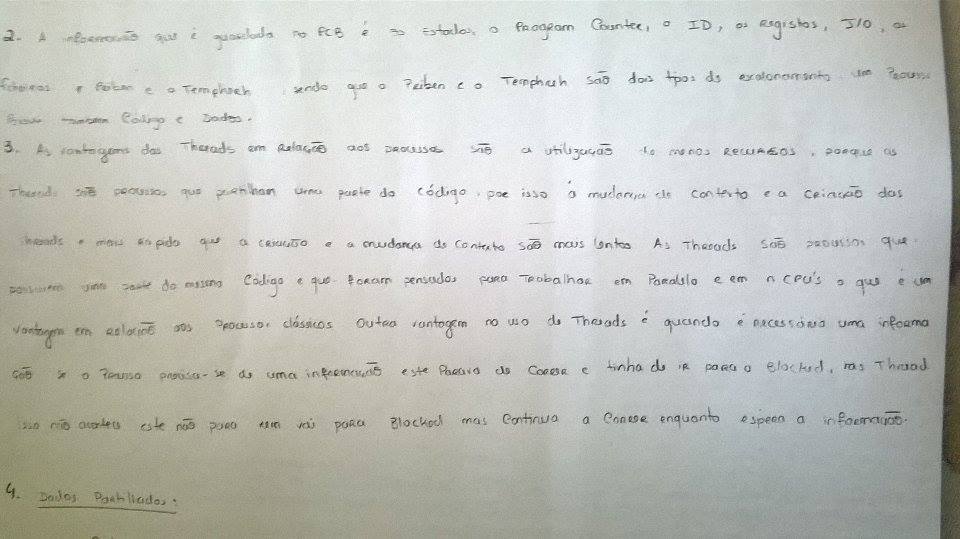 2. A informação que é guardada no PCB é os Estados, o Program Counter, o ID, os registos, I/O, os
ficheiros e o Temphreh, sendo que o e o Temphreh são dois tipos de escalonamento um Processo
Possui também Código e Dados.
3. As vantagens das Threads em Relação aos processos são a utilização de menos Recursos, porque as
Threads são processos que partilham uma parte do código, por isso a mudança de contexto e a criação das
threads e mais rapido que a criação e a mudança de contexto são mais lentos As Threads são processos que
possuem uma parte do mesmo Código e que foram pensados para Trabalhar em Paralelo e em n CPU's o que é um
Vantagem em Relação aos processos clássicos Outra vantagem no uso de Threads é quando é necessária uma informa
ção se o Processo precisa-se de uma informação este Parava de Correr e tinha de ir para o Blocked, nas Thread
isso não acontece este não para nem vai para Blocked mas Continua a Correr enquanto espera a informação.
4. Dados Partilhados.